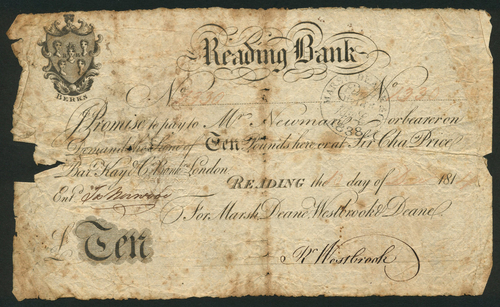 Reading Bank
BERKS
No No
I Promise to pay to Mr. Newman or bearer on
Demand the Sum of Ten Pounds here or at Sir Cha. Price
Bar.t Kay & Co. Bank.rs London
READING the day of 181
Ent.d
For Marsh, Deane, Westbrook & Deane
£ Ten
R. Westbrook